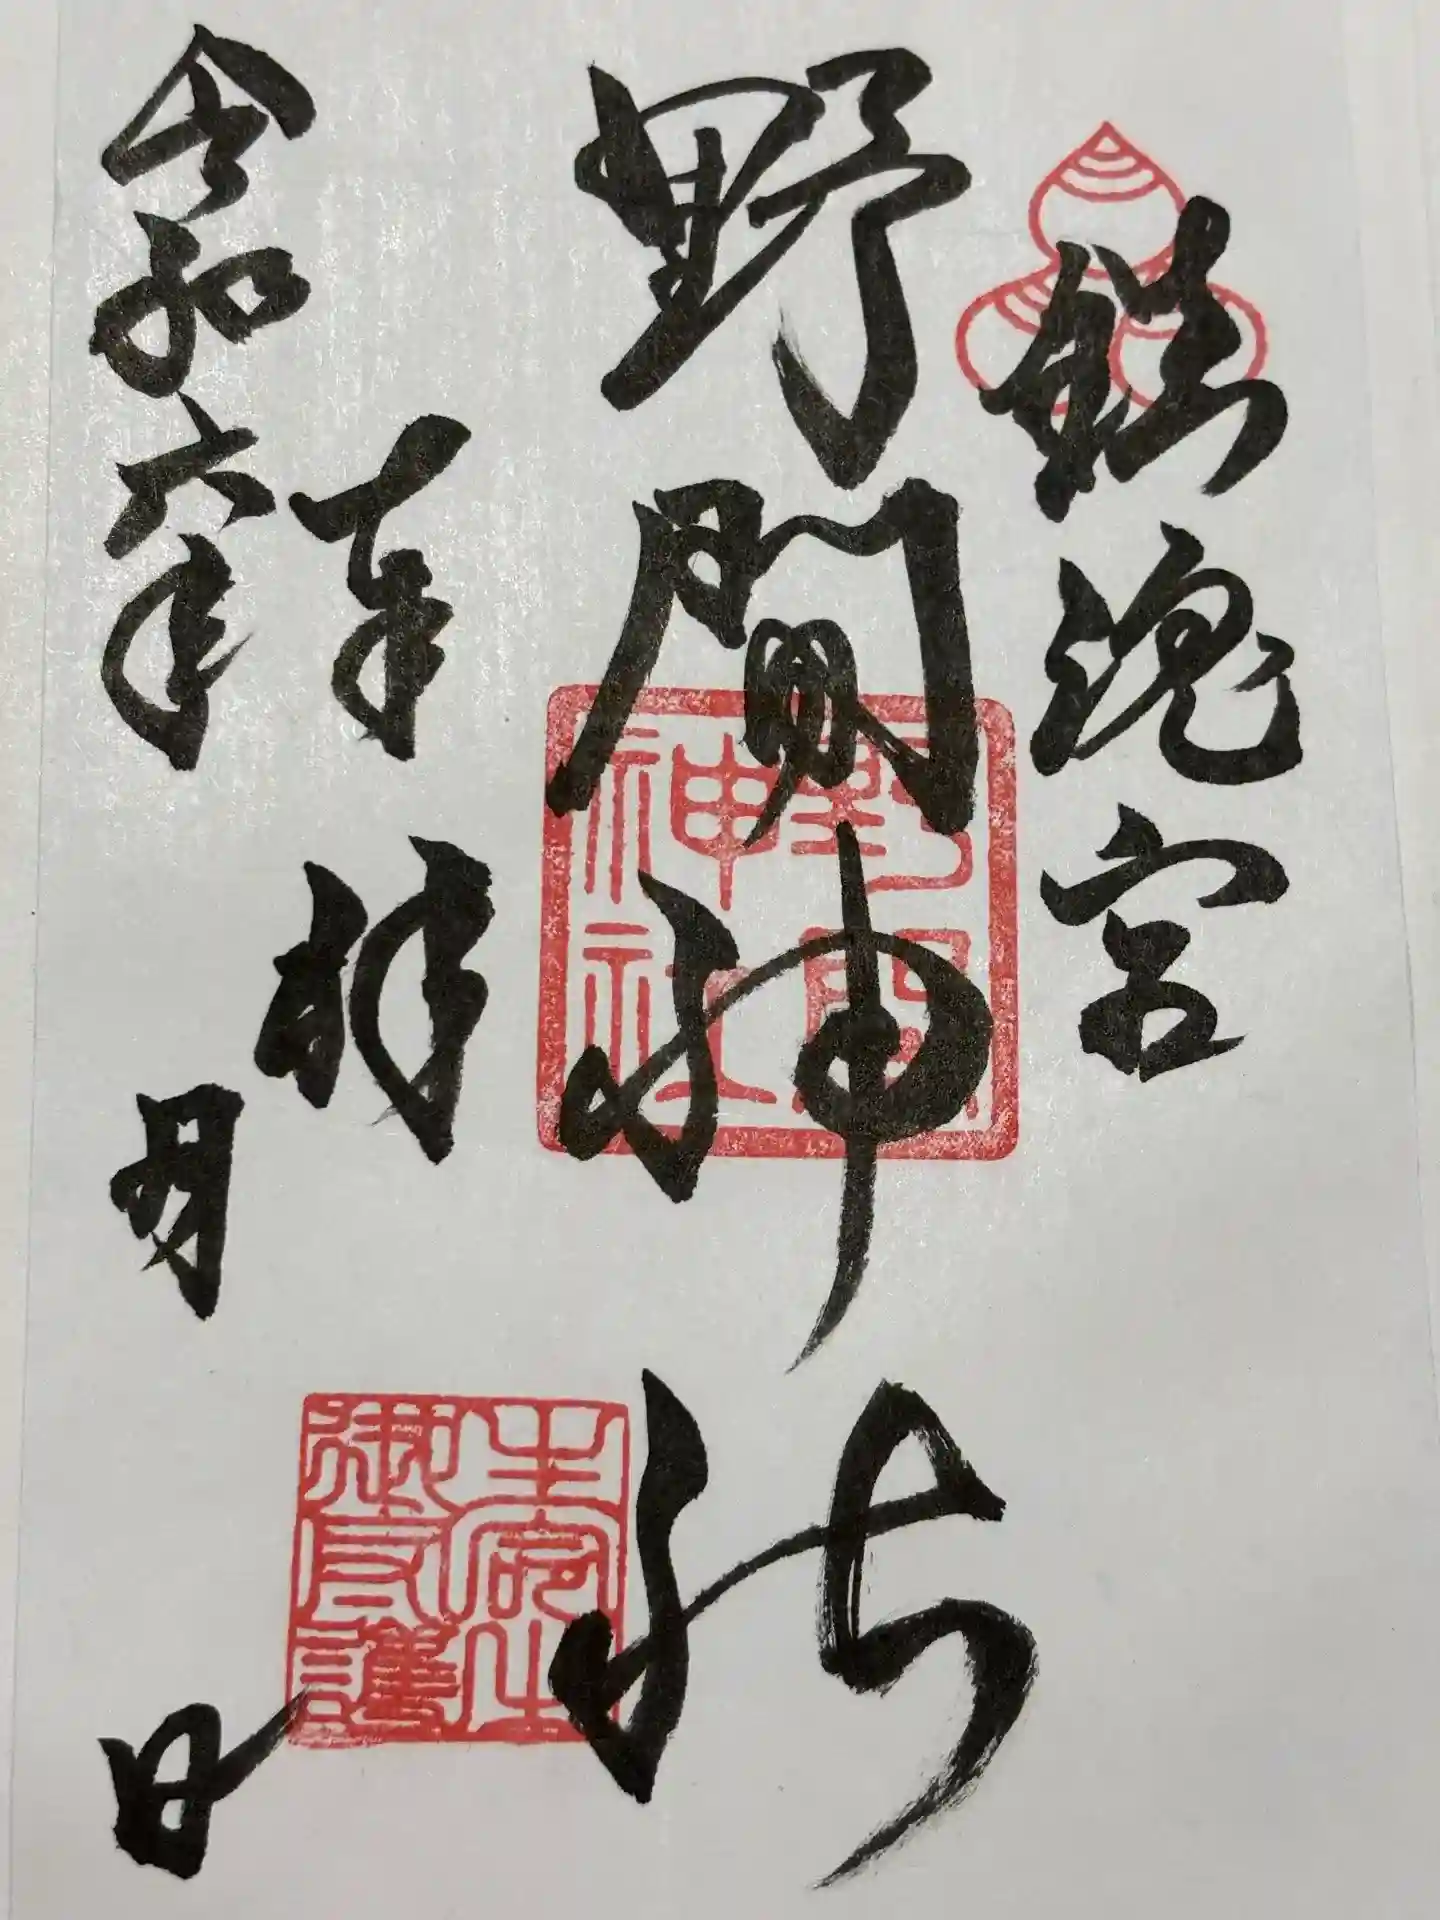 鎮魂宮
野間神社
野間
神社
奉拝
令和六年 月 日